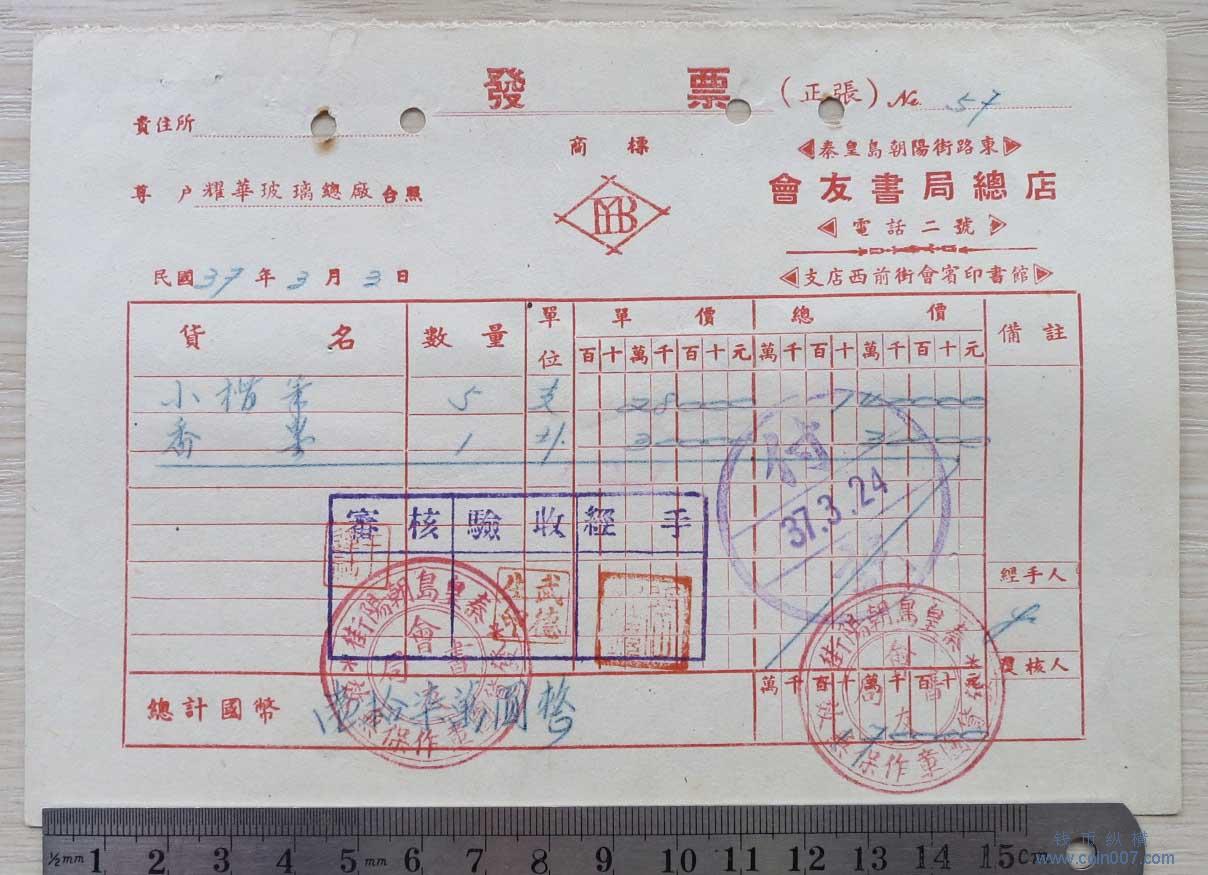 發票（正張）No. 57
貴住所
商標
尊戶 耀華玻璃總廠 台照
秦皇島朝陽街路東
會友書局總店
電話二號
支店西前街會賓印書館
民國37年3月3日
貨名 數量 單位 單價 總價 備註
百十萬千百十元 萬千百十萬千百十元
小楷筆 5 支
1 3 3
審核 驗收 經手
付
37.3.24
武德
經手人
覆核人
秦皇島朝陽街
會友書局
作保
秦皇島朝陽街
章作保
萬千百十萬千百十元
總計國幣
15cm
½mm 1 2 3 4 5 mm 6 7 8 9 10 11 12 13 14 15cm
钱币纵横
www.coin007.com